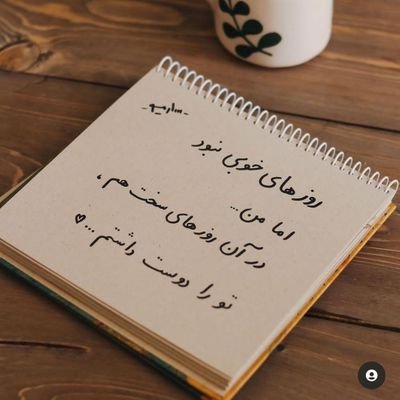 -ساریه-
روزهای خوبی نبود
اما من...
در آن روزهای سخت هم،
تو را دوست داشتم...♡